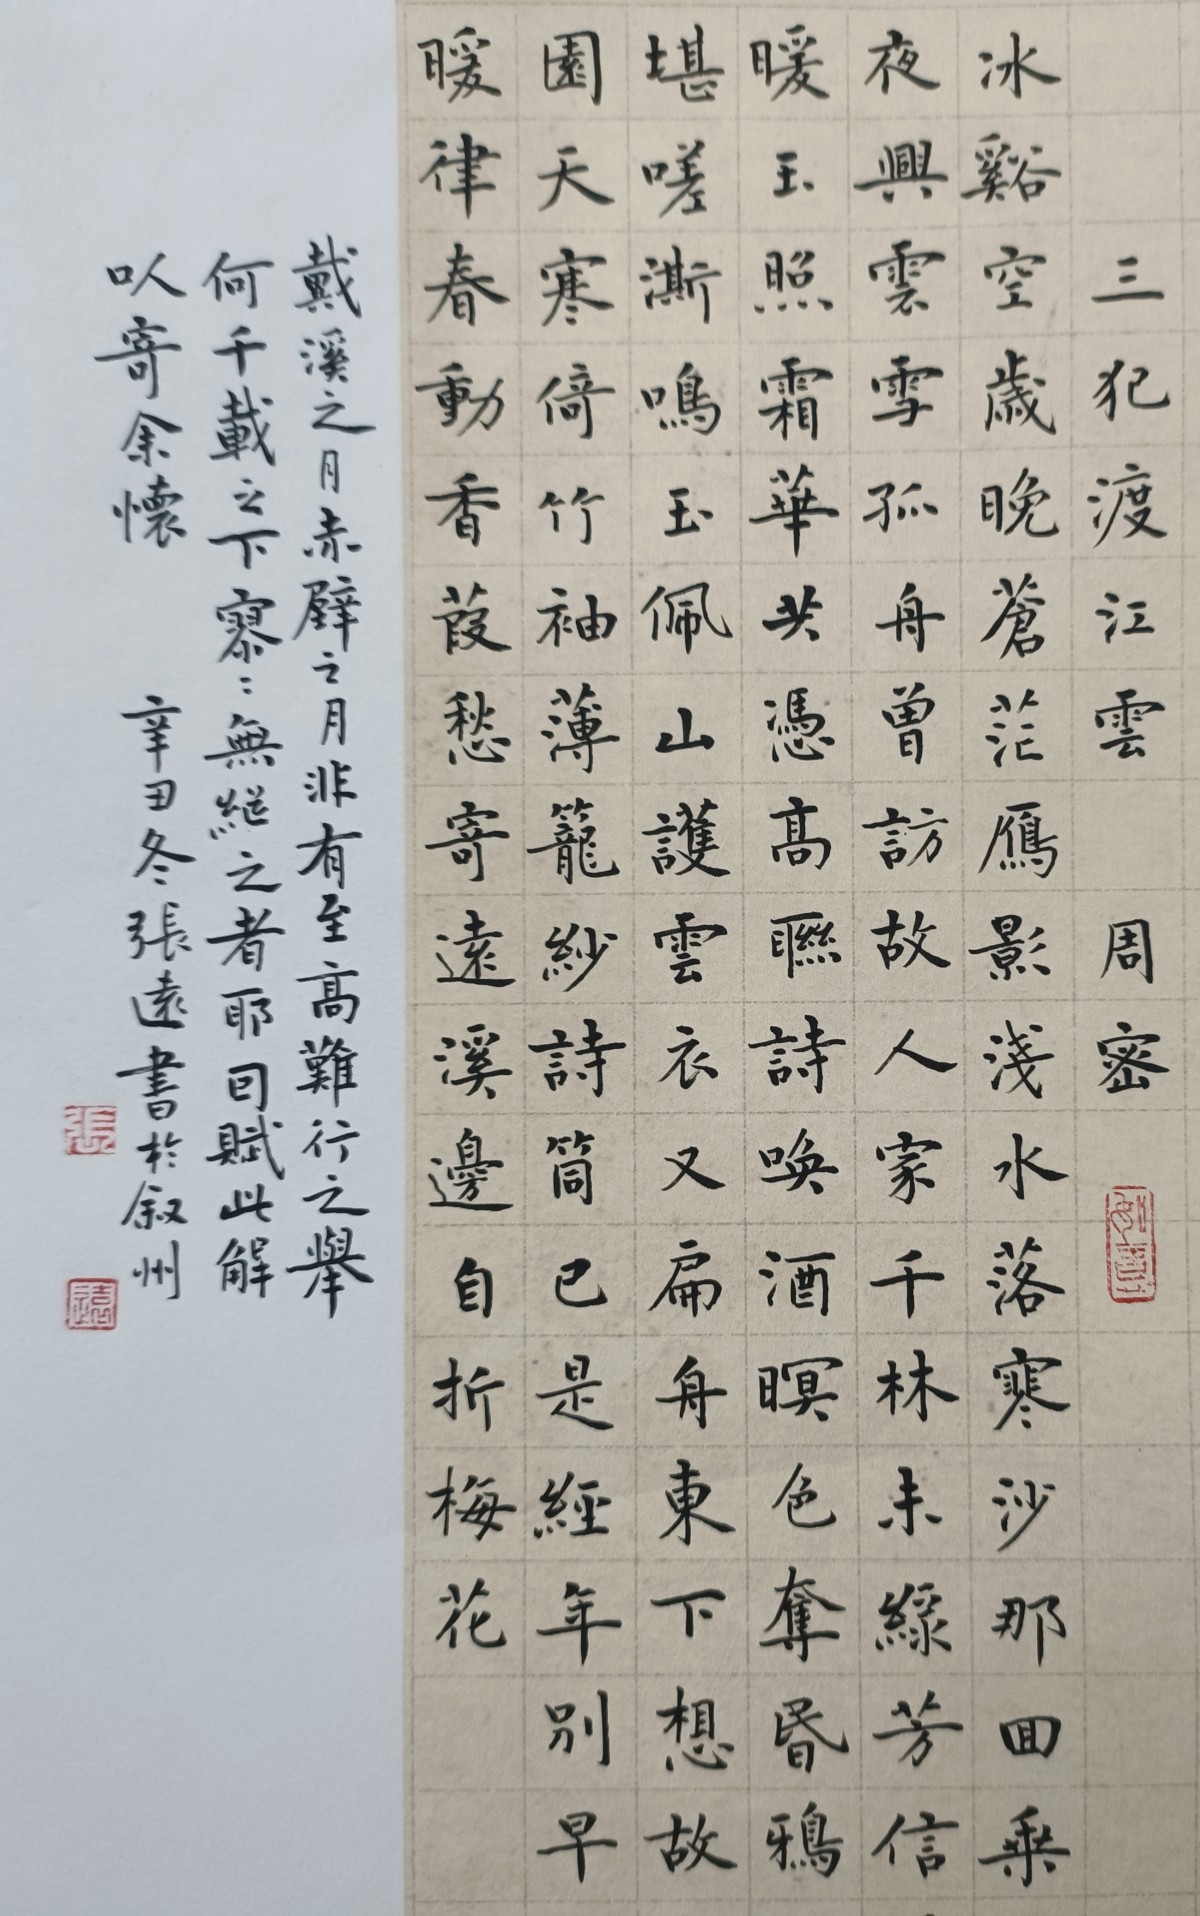 三犯渡江雲 周密
冰谿空歲晚蒼茫鴈影淺水落寒沙那回乘
夜興雲雪孤舟曾訪故人家千林未綠芳信
暖玉照霜華共憑高聯詩喚酒暝色奪昏鴉
堪嗟澌鳴玉佩山護雲衣又扁舟東下想故
園天寒倚竹袖薄籠紗詩筒已是經年別早
暖律春動香葭愁寄遠溪邊自折梅花
戴溪之月赤壁之月非有至高難行之舉
何千載之下寥〻無繼之者耶因賦此解
以寄余懷 辛丑冬張遠書於叙州
張
遠